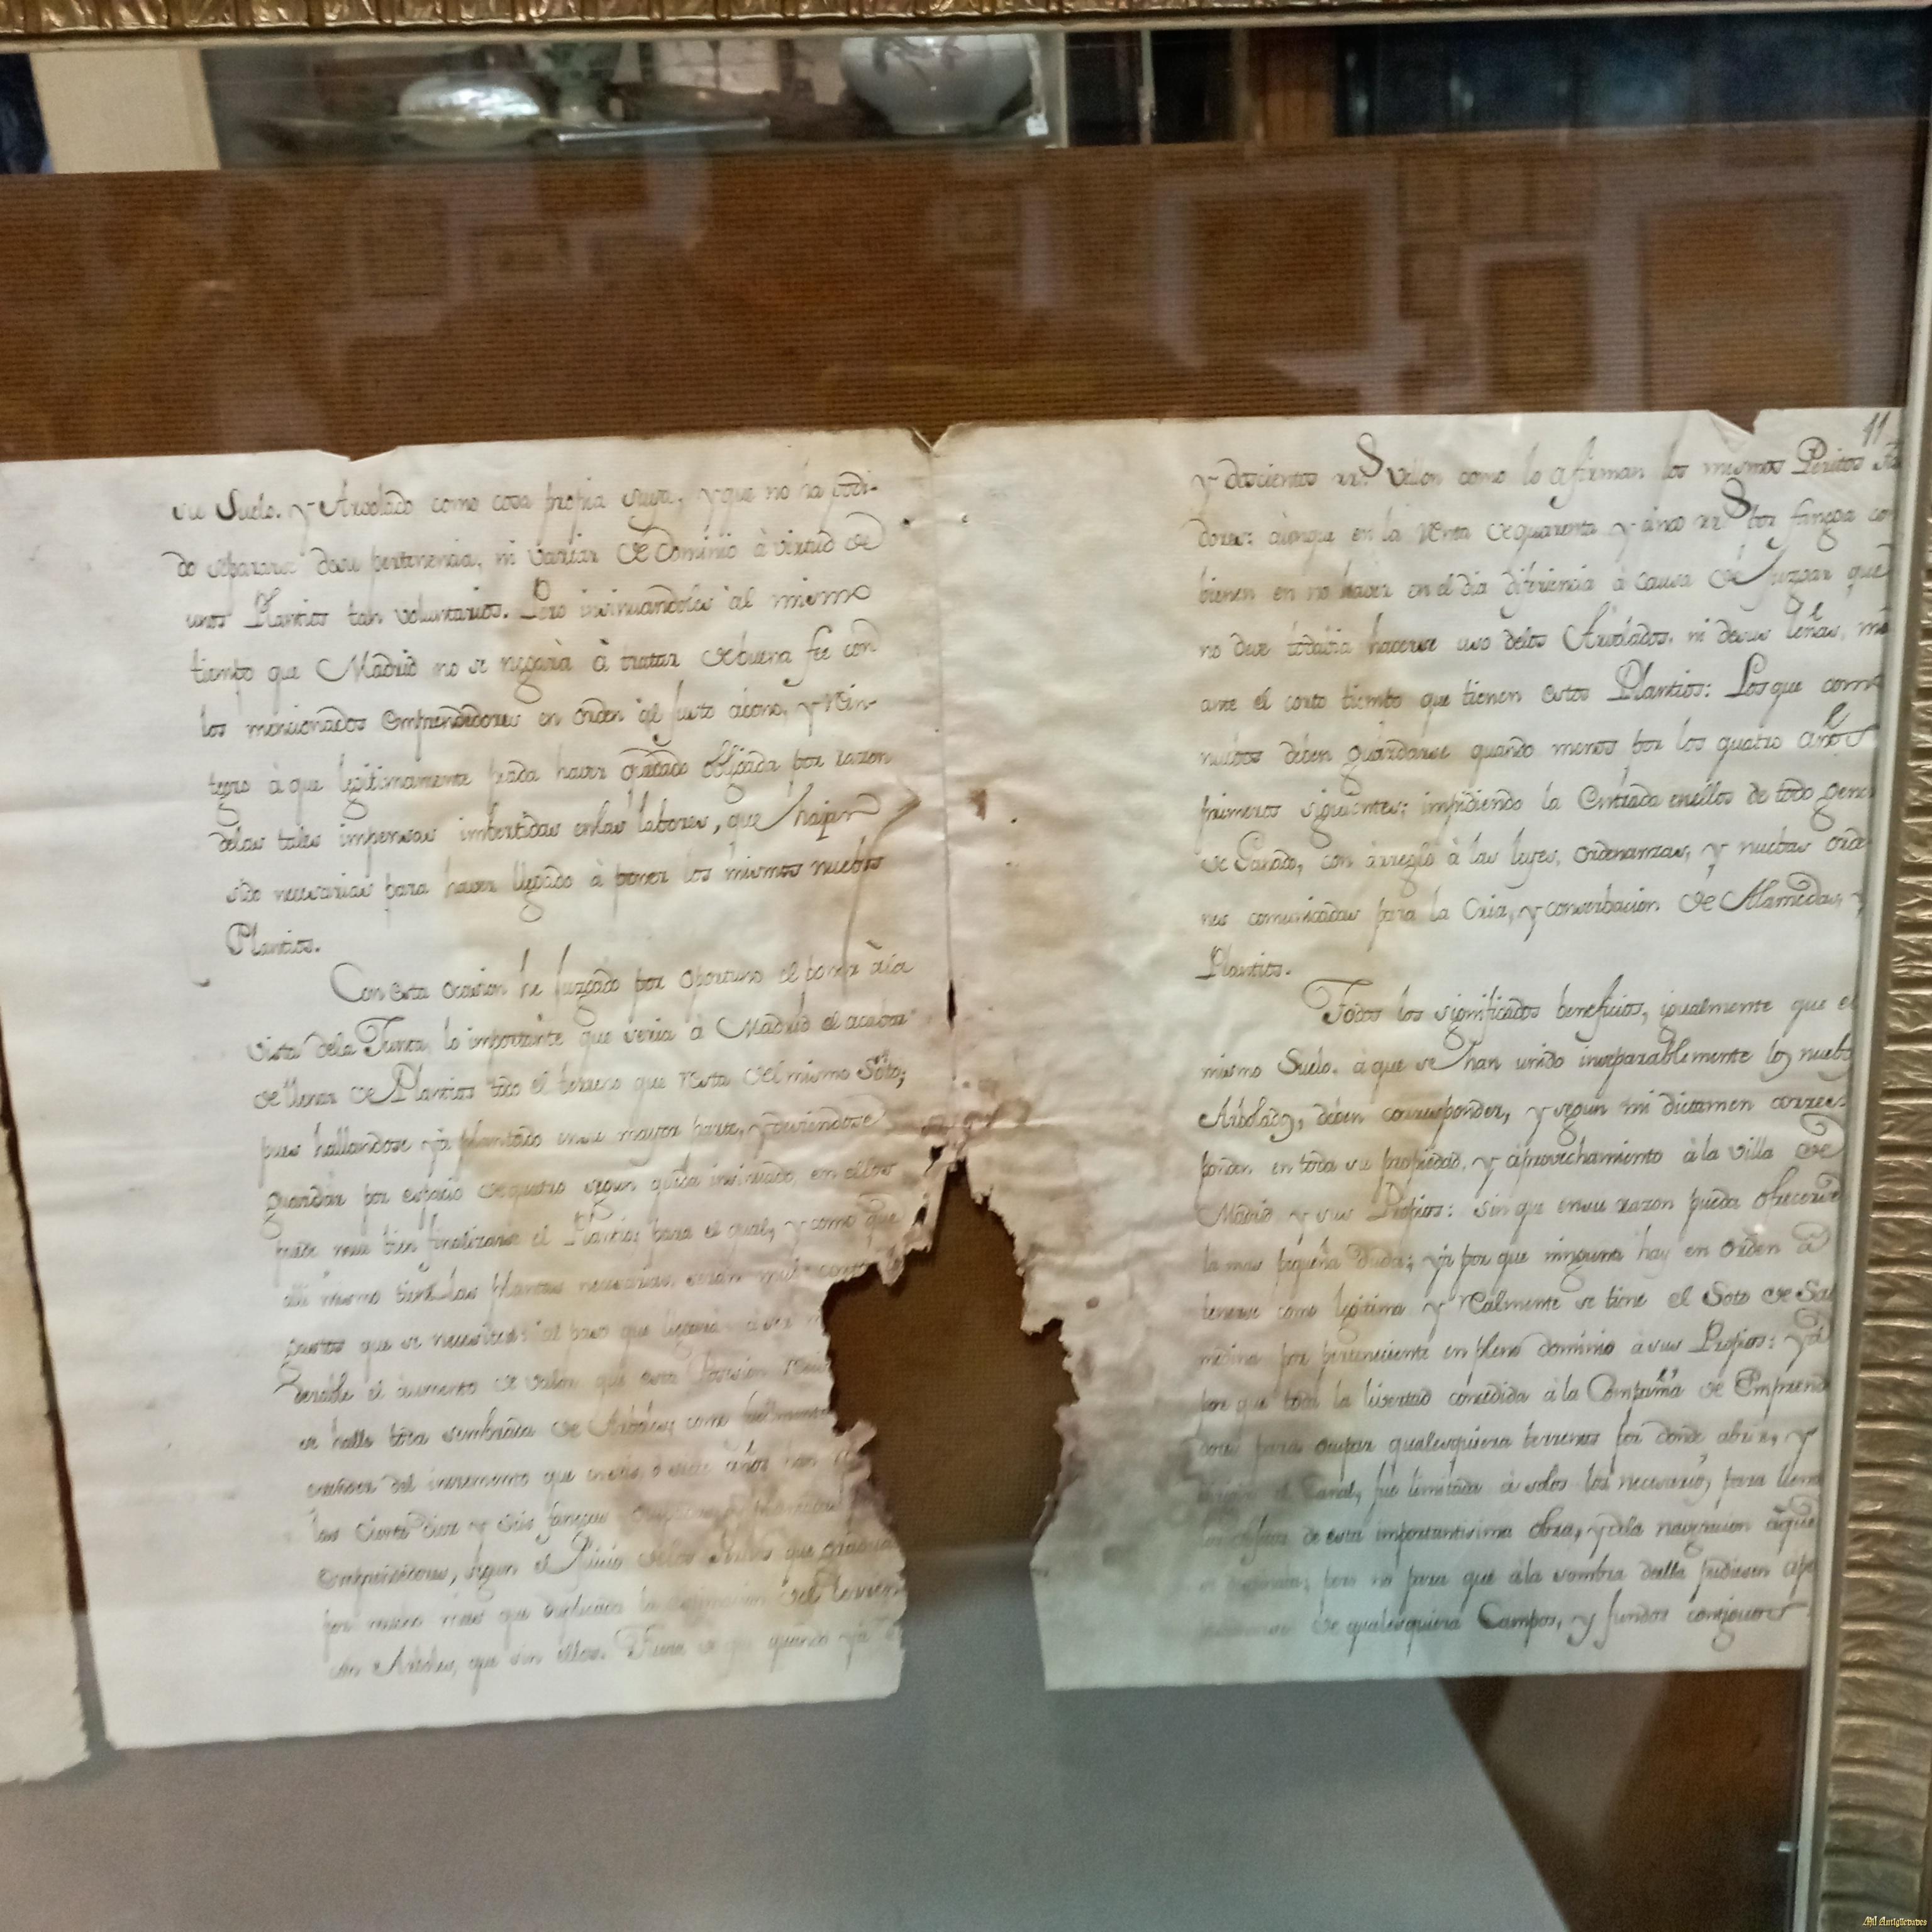 su Suelo. y Arvolado como cosa propia suya, y que no ha podi-
do separarse desu pertenencia, ni variar de Dominio à virtud de
unos Plantios tan voluntarios. Pero insinuandoles al mismo
tiempo que Madrid no se negarà à tratar de buena fee con
los mencionados Emprendedores en orden al justo àbono, y Rein-
tegro à que legitimamente pueda haver quedado obligada por razon
delas tales impensas imbertidas enlas labores, que haian
sido necesarias para haver llegado à poner los mismos nuebos
Plantios.
Con esta ocasion he juzgado por oportuno el poner àla
vista dela Junta, lo importante que seria à Madrid el acabar
de llenar de Plantios todo el terreno que resta del mismo Soto;
pues hallandose yà plantado ensu mayor parte, y deviendose
guardar por espacio de quatro segun queda insinuado, en ellos
puede mui bien finalizarse el Plantio; para el qual, y como que
alli mismo tiene las Plantas necesarias, seràn mui cortos
gastos que se necesiten: al paso que llegaria à ser
derable el àumento de valor que esta Posesion
se halle toda sembrada de Arboles; como
del incremento que en seis, ò siete años han
las ciento diez y seis fanegas
Emprendedores, segun el Juicio delos Peritos que
por mucho mas que duplicada la estimacion del terreno
con Arboles, que sin ellos. quando yà
11
y doscientos rr.s vellon como lo afirman los mismos Peritos
dores: àunque en la Renta de quarenta y cinco rr.s por fanega con
bienen en no haver en el dia diferiencia à causa de Juzgar que
no deve todabia hacerse uso delos Arvolados, ni desus leñas, me
ante el corto tiempo que tienen estos Plantios: Los que como
nuebos deben guardarse quando menos por los quatro años
primeros siguientes; impidiendo la Entrada enellos de todo gene
de Ganado, con àrreglo à las leyes, ordenanzas, y nuebas orde
nes comunicadas para la Cria, y conserbacion de Alamedas, y
Plantios.
Todos los significados beneficios, igualmente que el
mismo Suelo, à que se han unido inseparablemente los nuebos
Arbolados, deben corresponder, y segun mi dictamen corres-
ponden en toda su propiedad, y àprovechamiento à la Villa de
Madrid y sus Propios: sin que ensu razon pueda ofrecerse
la mas pequeña duda; yà por que ninguna hay en orden à
tenerse como legitima y Realmente se tiene el Soto de Sal
medina por perteneciente en pleno dominio à sus Propios: yà
por que toda la livertad concedida à la Compañia de Emprende
dores para ocupar qualesquiera terrenos por donde abrir, y
el Canal, fue limitada à solos los necesarios para llenar
de esta importantisima obra, y dela navegacion àque
pero no para que àla sombra deella pudiesen àpo
de qualesquiera Campos, y fundos contiguos